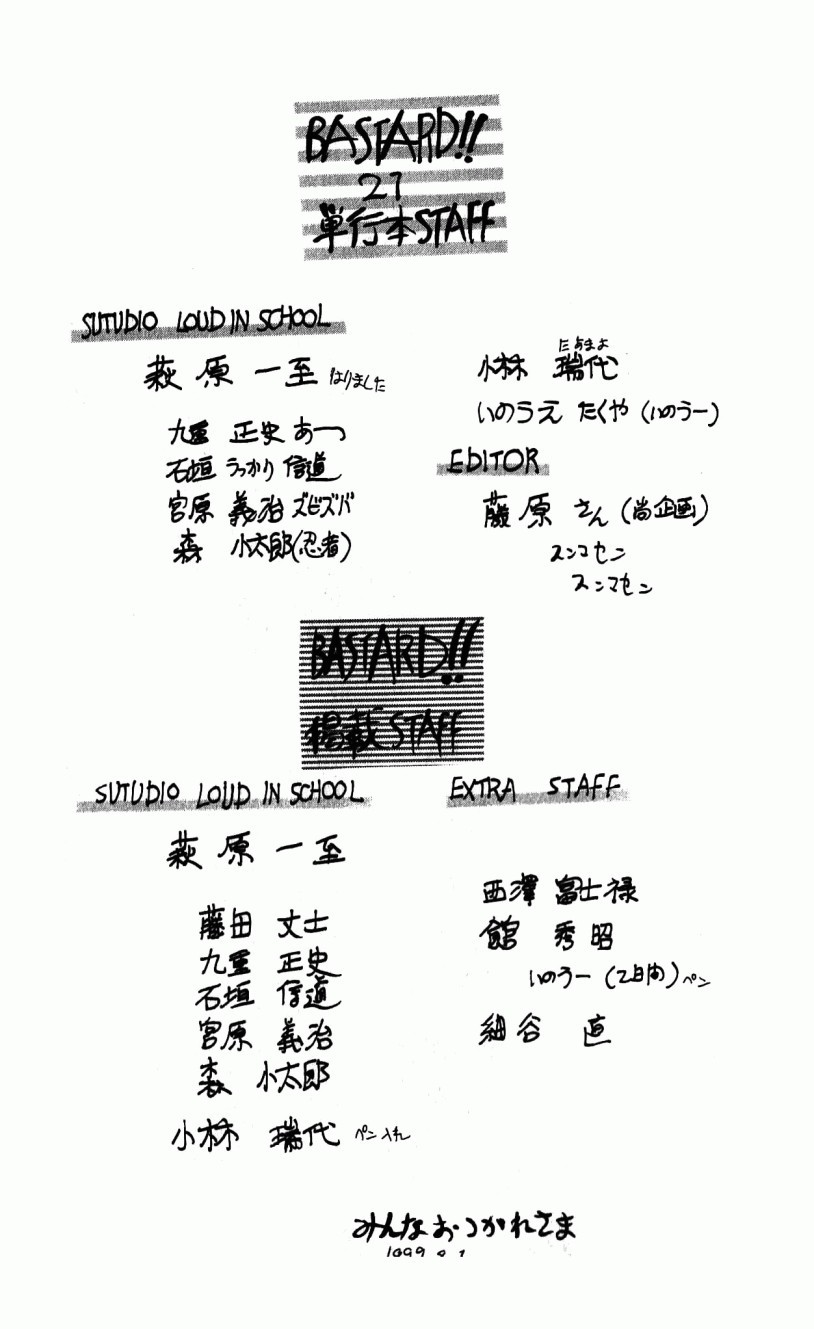 BASTARD!!
21
単行本STAFF
SUTUDIO LOUD IN SCHOOL
萩原 一至 はりました
九重 正史 あーつ
石垣 うっかり 信道
宮原 義治 ズビズバ
森 小太郎(忍者)
たまよ
小林 瑞代
いのうえ たくや (いのうー)
EDITOR
藤原 さん (尚企画)
スンマセン
スンマセン
BASTARD!!
掲載STAFF
SUTUDIO LOUD IN SCHOOL
萩原 一至
藤田 丈士
九重 正史
石垣 信道
宮原 義治
森 小太郎
小林 瑞代 ペン入れ
EXTRA STAFF
西澤 富士禄
館 秀昭
いのうー (2日間) ペン
細谷 直
みんなおつかれさま
1999